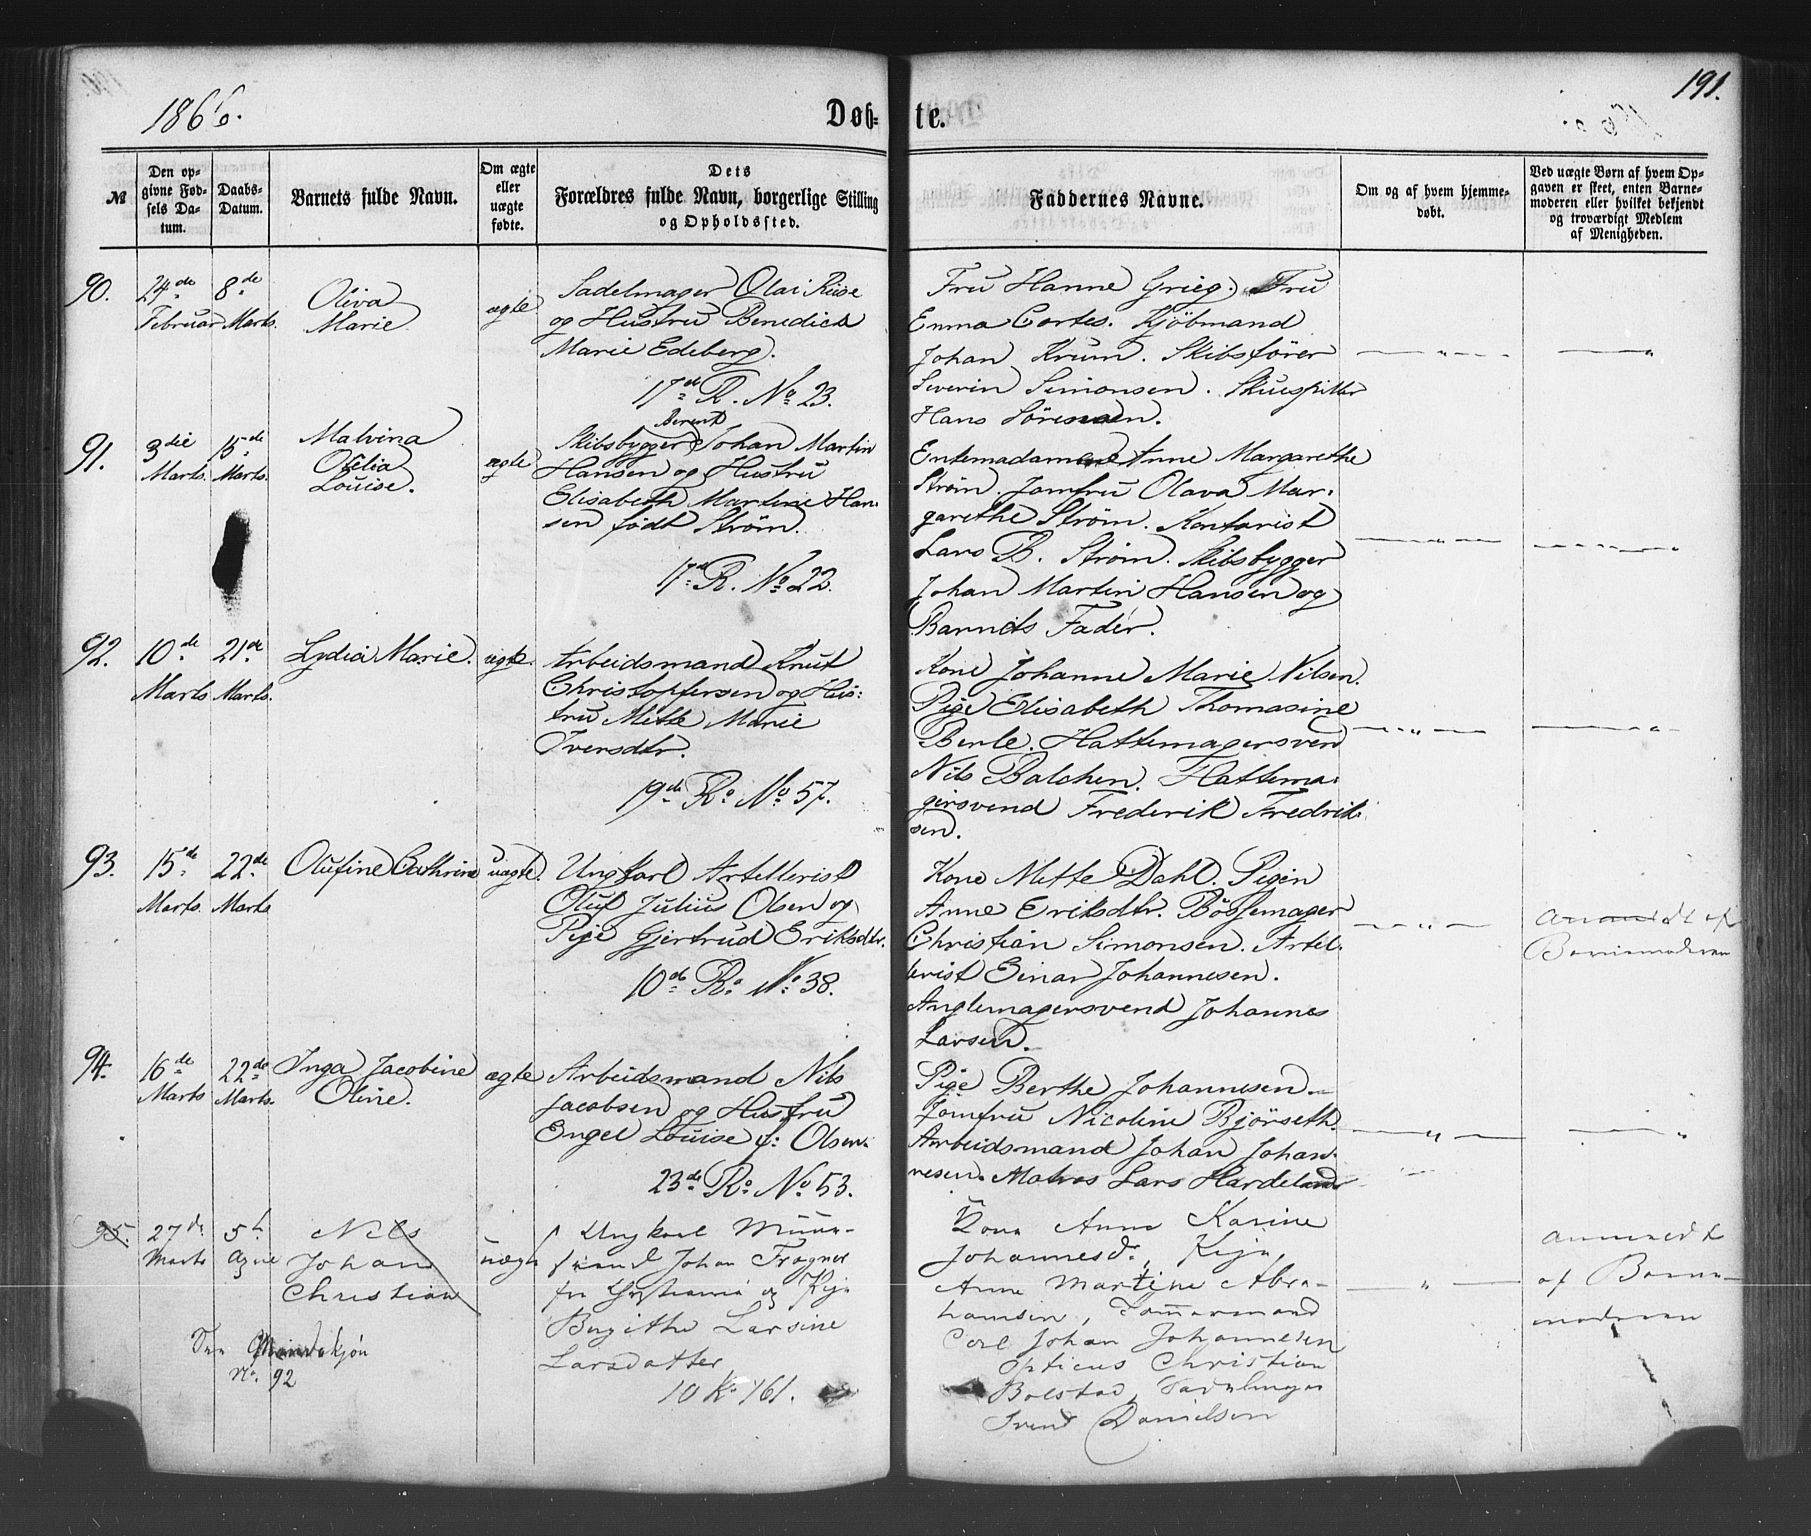 191.
1866.
Døb-
te.
№
Den op-
givne Fød-
sels Da-
tum.
Daabs-
Datum.
Barnets fulde Navn.
Om ægte
eller
uægte
fødte.
Dets
Forældres fulde Navn, borgerlige Stilling
og Opholdssted.
Faddernes Navne.
Om og af hvem hjemme-
døbt.
Ved uægte Børn af hvem Op-
gaven er skeet, enten Barne-
moderen eller hvilket bekjendt
og troværdigt Medlem
af Menigheden.
90.
24de
Februar
8de
Marts.
Oliva
Marie
ægte
Sadelmager Olai Riise
og Hustru Benedicte
Marie Edeberg.
17de R. No 23.
Fru Hanne Grieg. Fru
Emma Cortes. Kjöbmand
Johan Krum. Skibsfører
Severin Simonsen. Skuespiller
Hans Sörensen.
— " —
— "
91.
3die
Marts.
15de
Marts.
Malvina
Ofelia
Louise.
ægte
Berent
Skibsbygger Johan Martin
Hansen og Hustru
Elisabeth Martine Han-
sen født Strøm.
17de R. No 22.
Enkemadame Anne Margarethe
Strøm. Jomfru Olava Mar-
garethe Strøm. Kontorist
Lars B. Strøm. Skibsbygger
Johan Martin Hansen og
Barnets Fader.
— " —
— "
92.
10de
Marts
21de
Marts.
Lydia Marie.
ægte.
Arbeidsmand Knut
Christophersen og Hus-
tru Mette Marie
Iversdtr.
19de R. No 57.
Kone Johanne Marie Nilsen.
Pige Elisabeth Thomasine
Berle. Hattemagersvend
Nils Balchen. Hattema-
gersvend Frederik Fredrik-
sen.
— " —
— "
93.
15de
Marts.
22de
Marts
Olufine Cathrine
uægte.
Ungkarl Artellerist
Oluf Julius Olsen og
Pige Gjertrud Eriksdtr.
10de R. No 38.
Kone Mette Dahl. Pigen
Anne Eriksdtr. Bössemager
Christian Simonsen. Artel-
lerist Einar Johannesen.
Johannes
Larsen.
— " —
Anmeldt af
Barnemoderen
94.
16de
Marts
22de
Marts.
Inga Jacobine
Oline.
ægte
Arbeidsmand Nils
Jacobsen og Hustru
Engel Louise f: Olsen.
23de R. No 53.
Pige Berthe Johannesen.
Jomfru Nicoline Bjørseth.
Arbeidsmand Johan Johan-
nesen. Matros Lars Hardeland
— " —
— "
95.
27de
Marts
5te
Nils
Johan
Christian
uægte
Ungkarl Muur-
svend Johan Fragner
fra Christiania og Pige
Birgithe Larsine
Larsdatter
10 R. 161.
Kone Anne Karine
Johannesd., Pige,
Anne Martine Abra-
hamsen, Tømmermand
Carl Johan Johannesen
Opticus Christian
Bolstad, Sadelmager
Svend Danielsen
— " —
Anmeldt
af Barne-
moderen
No. 92